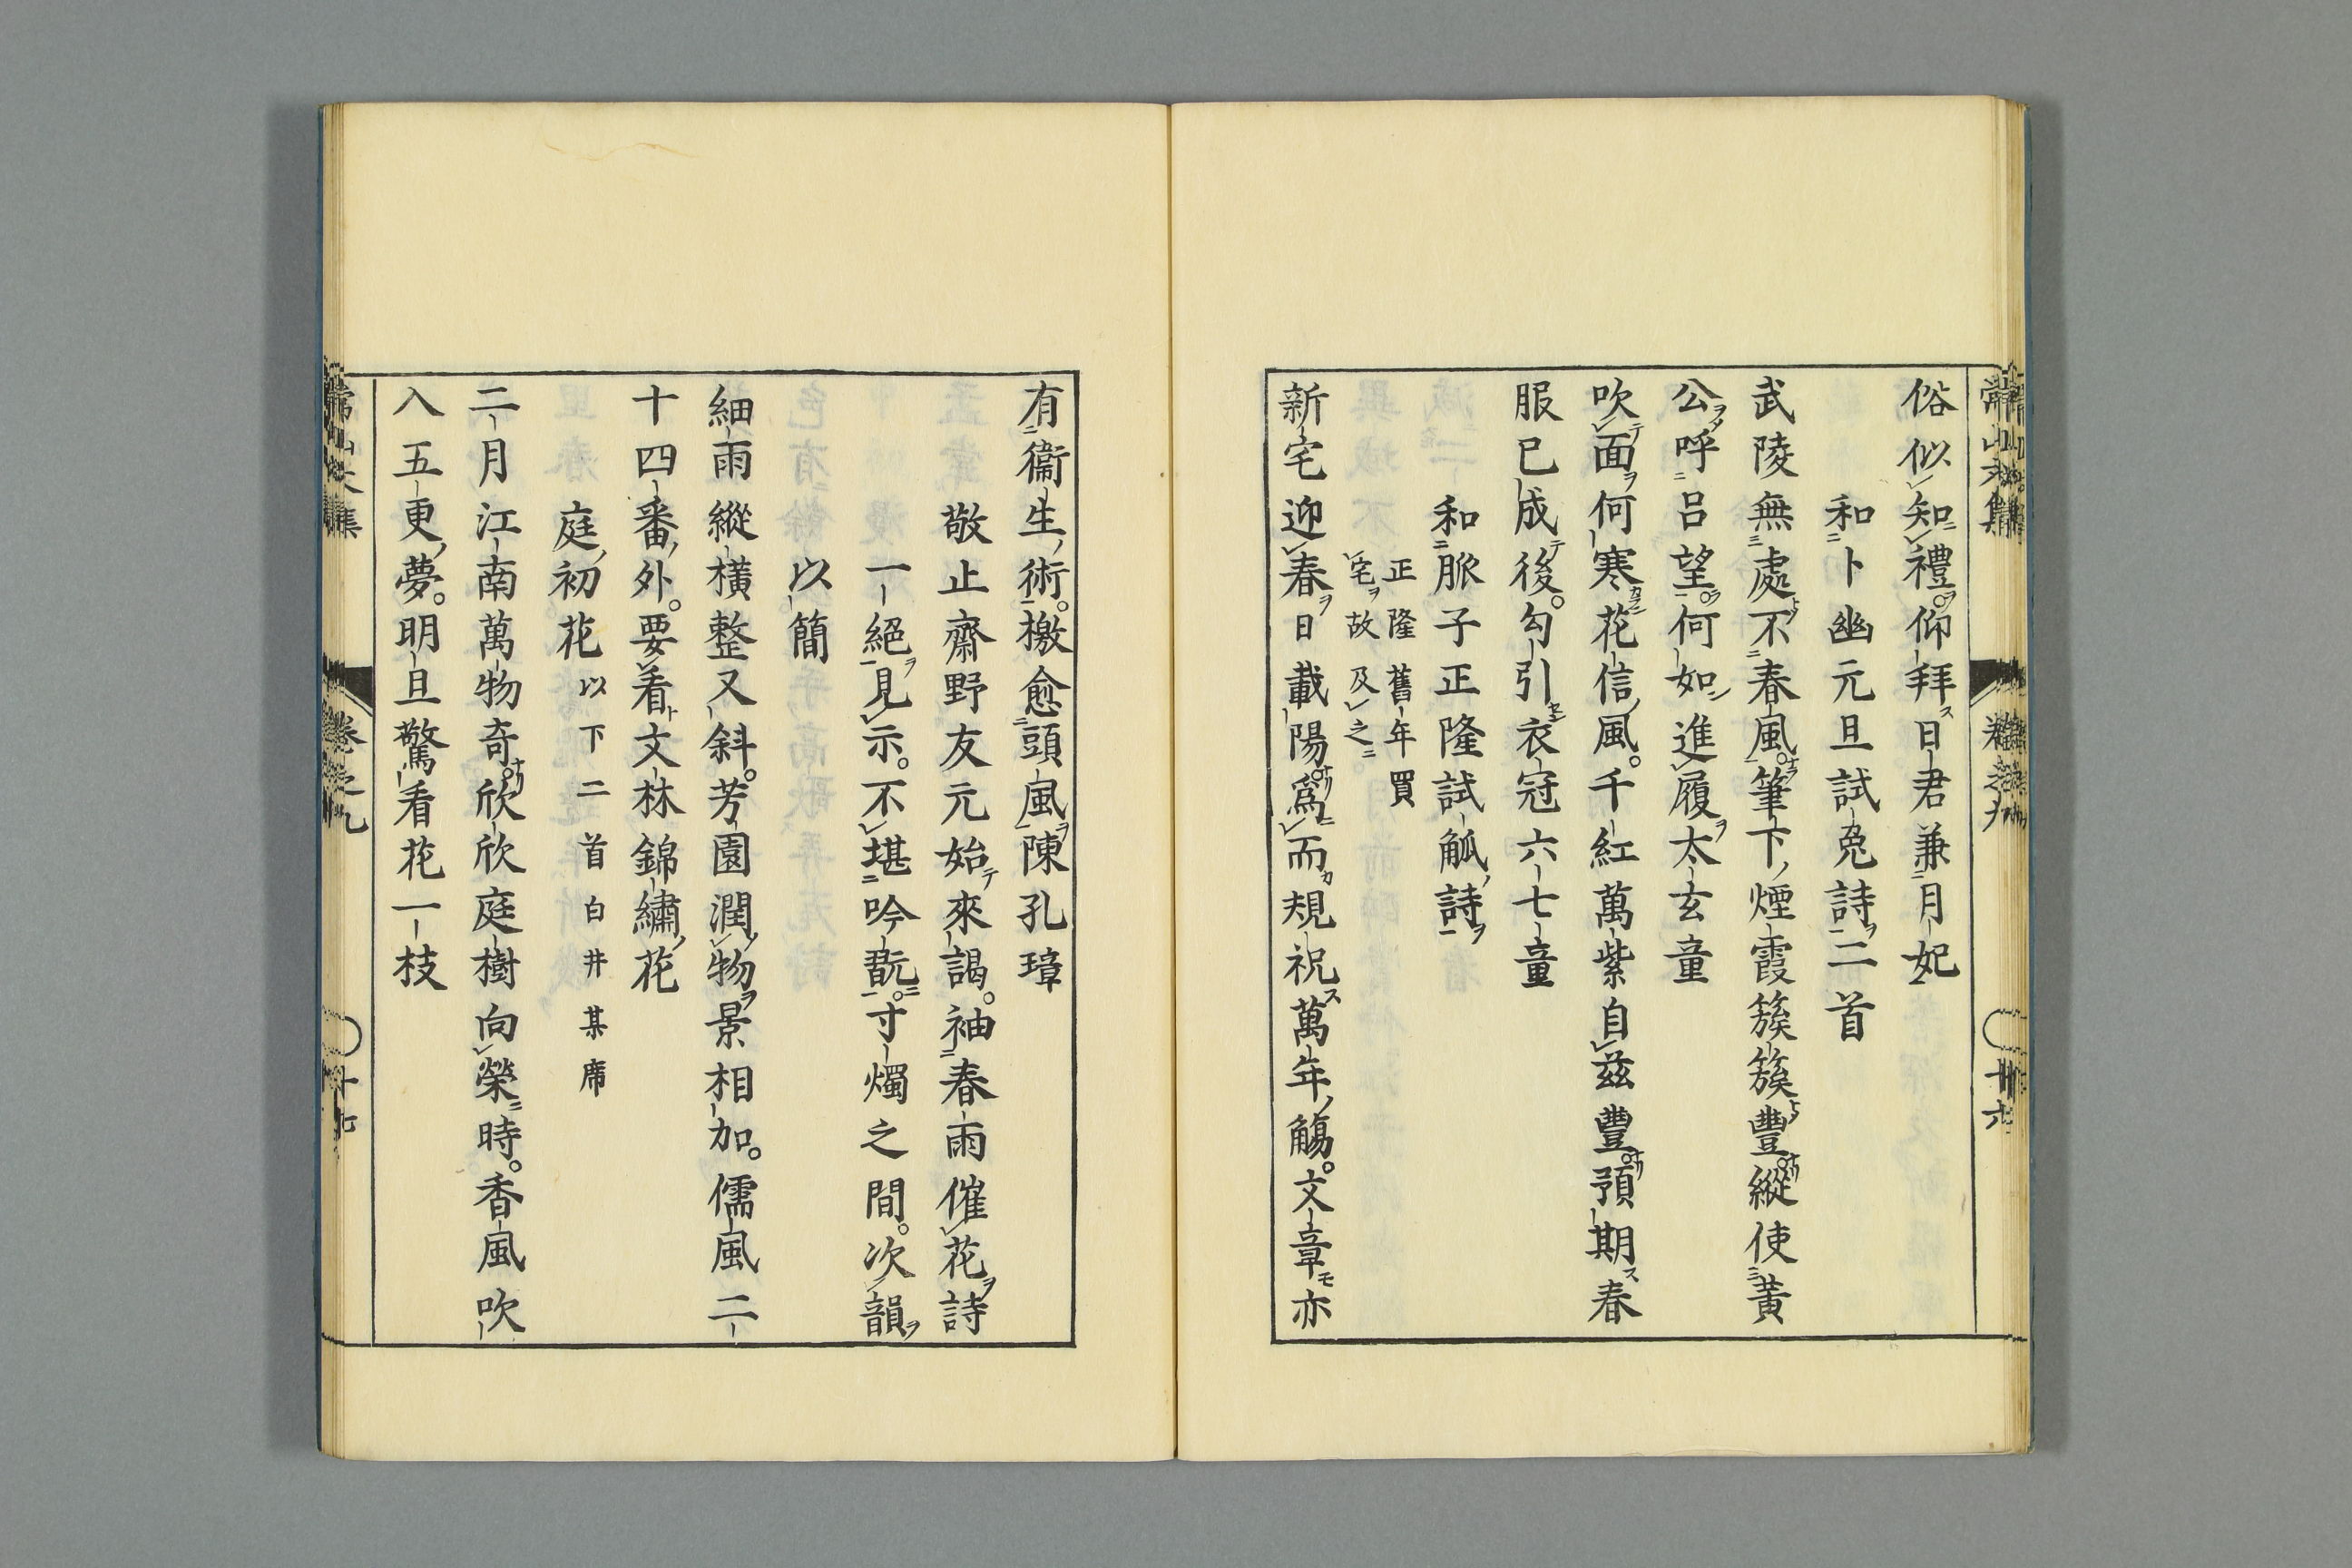 俗似知禮。仰拜日君兼月妃
和卜幽元旦試兔詩二首
武陵無處不春風。筆下煙霞簇簇豐。縱使黃
公呼呂望。何如進履太玄童
吹面何寒花信風。千紅萬紫自兹豐。預期春
服已成後。勾引衣冠六七童
和脈子正隆試觚詩
正隆舊年買
宅故及之
新宅迎春日載陽。爲而規祝萬年觴。文章亦
有衞生術。檄愈頭風陳孔璋
敬止齋野友元始來謁。袖春雨催花詩
一絕見示。不堪吟翫。寸燭之間。次韻
以簡
細雨縱橫整又斜。芳園潤物景相加。儒風二
十四番外。要着文林錦繡花
庭初花以下二首白井某席
二月江南萬物奇。欣欣庭樹向榮時。香風吹
入五更夢。明旦驚看花一枝
卷之九
十七